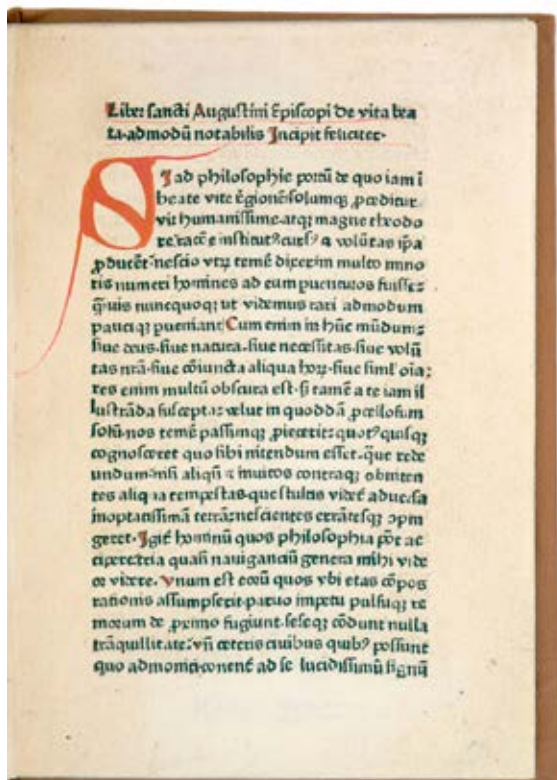 Liber sancti Augustini Episcopi de vita bea
ta admodū notabilis Incipit feliciter
SI ad philosophie portū de quo iam ī
beate vite solumqꝫ
vir humanissime atqꝫ magne theodo
re a volūtas ipa
nescio vtrū temē dixerim multo mino
ris numeri homines ad eum puenturos fuisse
quis nuncquoqꝫ ut videmus rari admodum
pauciqꝫ pueniant Cum enim in hūc mūdum
siue deus siue natura siue necessitas siue volū
tas nrā siue cōiuncta aliqua siue siml' oīa
res enim multū obscura est si tamē a te iam il
lustrāda suscepta velut in quoddā
nos temē passimqꝫ quisqꝫ
cognosceret quo sibi nitendum esset que rede
undum nisi aliqū inuitos contraqꝫ obniten
tes tempestas que stultis
inoptatissimā terrā nescientes errātesqꝫ
geret Igit hominū quos philosophia pōt ac
cipere tria quasi nauiganciū genera mihi vide
or videre Vnum est eorū quos vbi etas cōpos
rationis assumpserit paruo impetu pulsuqꝫ re
morum de primo fugiunt seseqꝫ cōdunt nulla
trāquillitate vn̄ ceteris ciuibus possunt
quo ad se lucidissimū signū